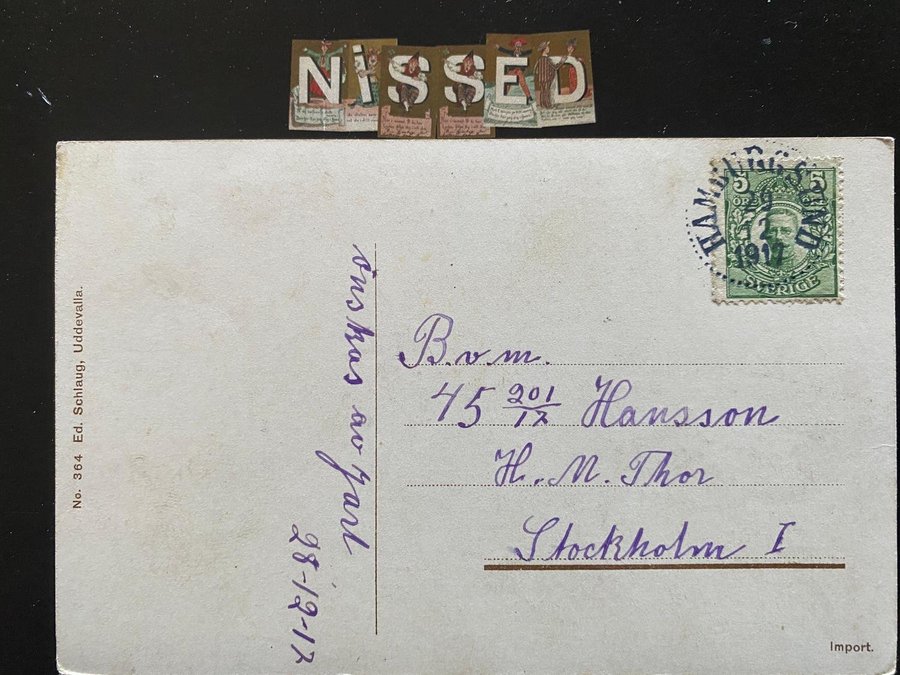 NiSSED
HAMBURGSUND
29
12
1917
5 5
ÖRE
SVERIGE
önskas av Jarl
28-12-17
B.v.m.
45 201/17 Hansson
H. M. Thor
Stockholm I
No. 364 Ed. Schlaug, Uddevalla.
Import.